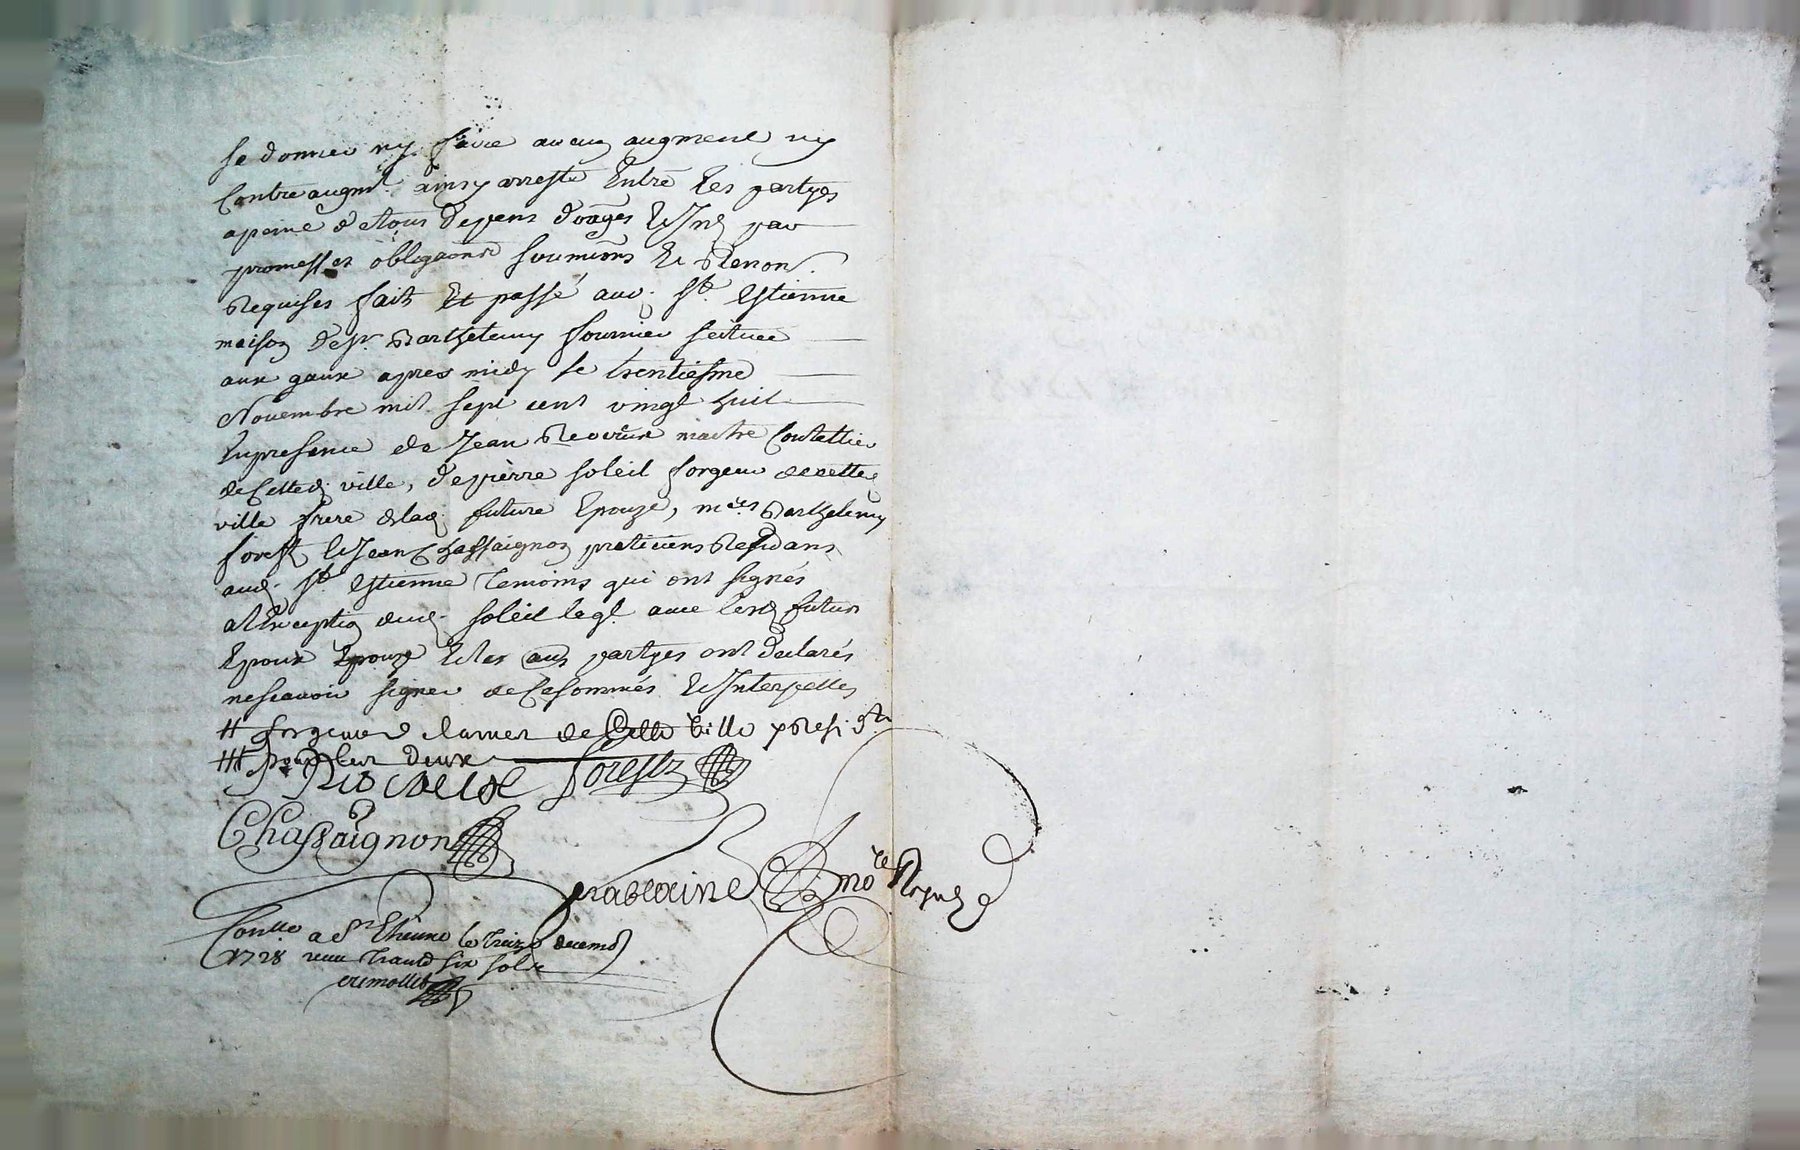 se donner ny faire aucun augment ny
Contreaugmt. ainsy arresté Entre les partyes
a peine de tous depens domages & Int par
promesses obligaons soumions Et Renon.
Requises fait Et passé aud. St. Estienne
maison de sr. Barthelemy fournier scituée
aux gaux apres midy le trentiesme
Novembre mil sept cent vingt huit
En presence de Jean maitre Coutellier
de Cetted. ville, de pierre soleil forgeur de cette
ville frere de lad. future Epouze, mes Barthelemy
forest & Jean Chassaignon praticiens Residans
aud. St. Estienne temoins qui ont signés
a l'Exception dud. soleil avec lesd. futur
Epoux Epouze Et les au partyes ont declarés
ne scavoir signer de Ce sommés & Interpellés
# forgeur d'armes de Cette ville
### pour les deux
forestz
Chassaignon
prabldine nore Royal
Conllé a St Etheinne le treize decemb
1728 receu trante six sols
cremollet